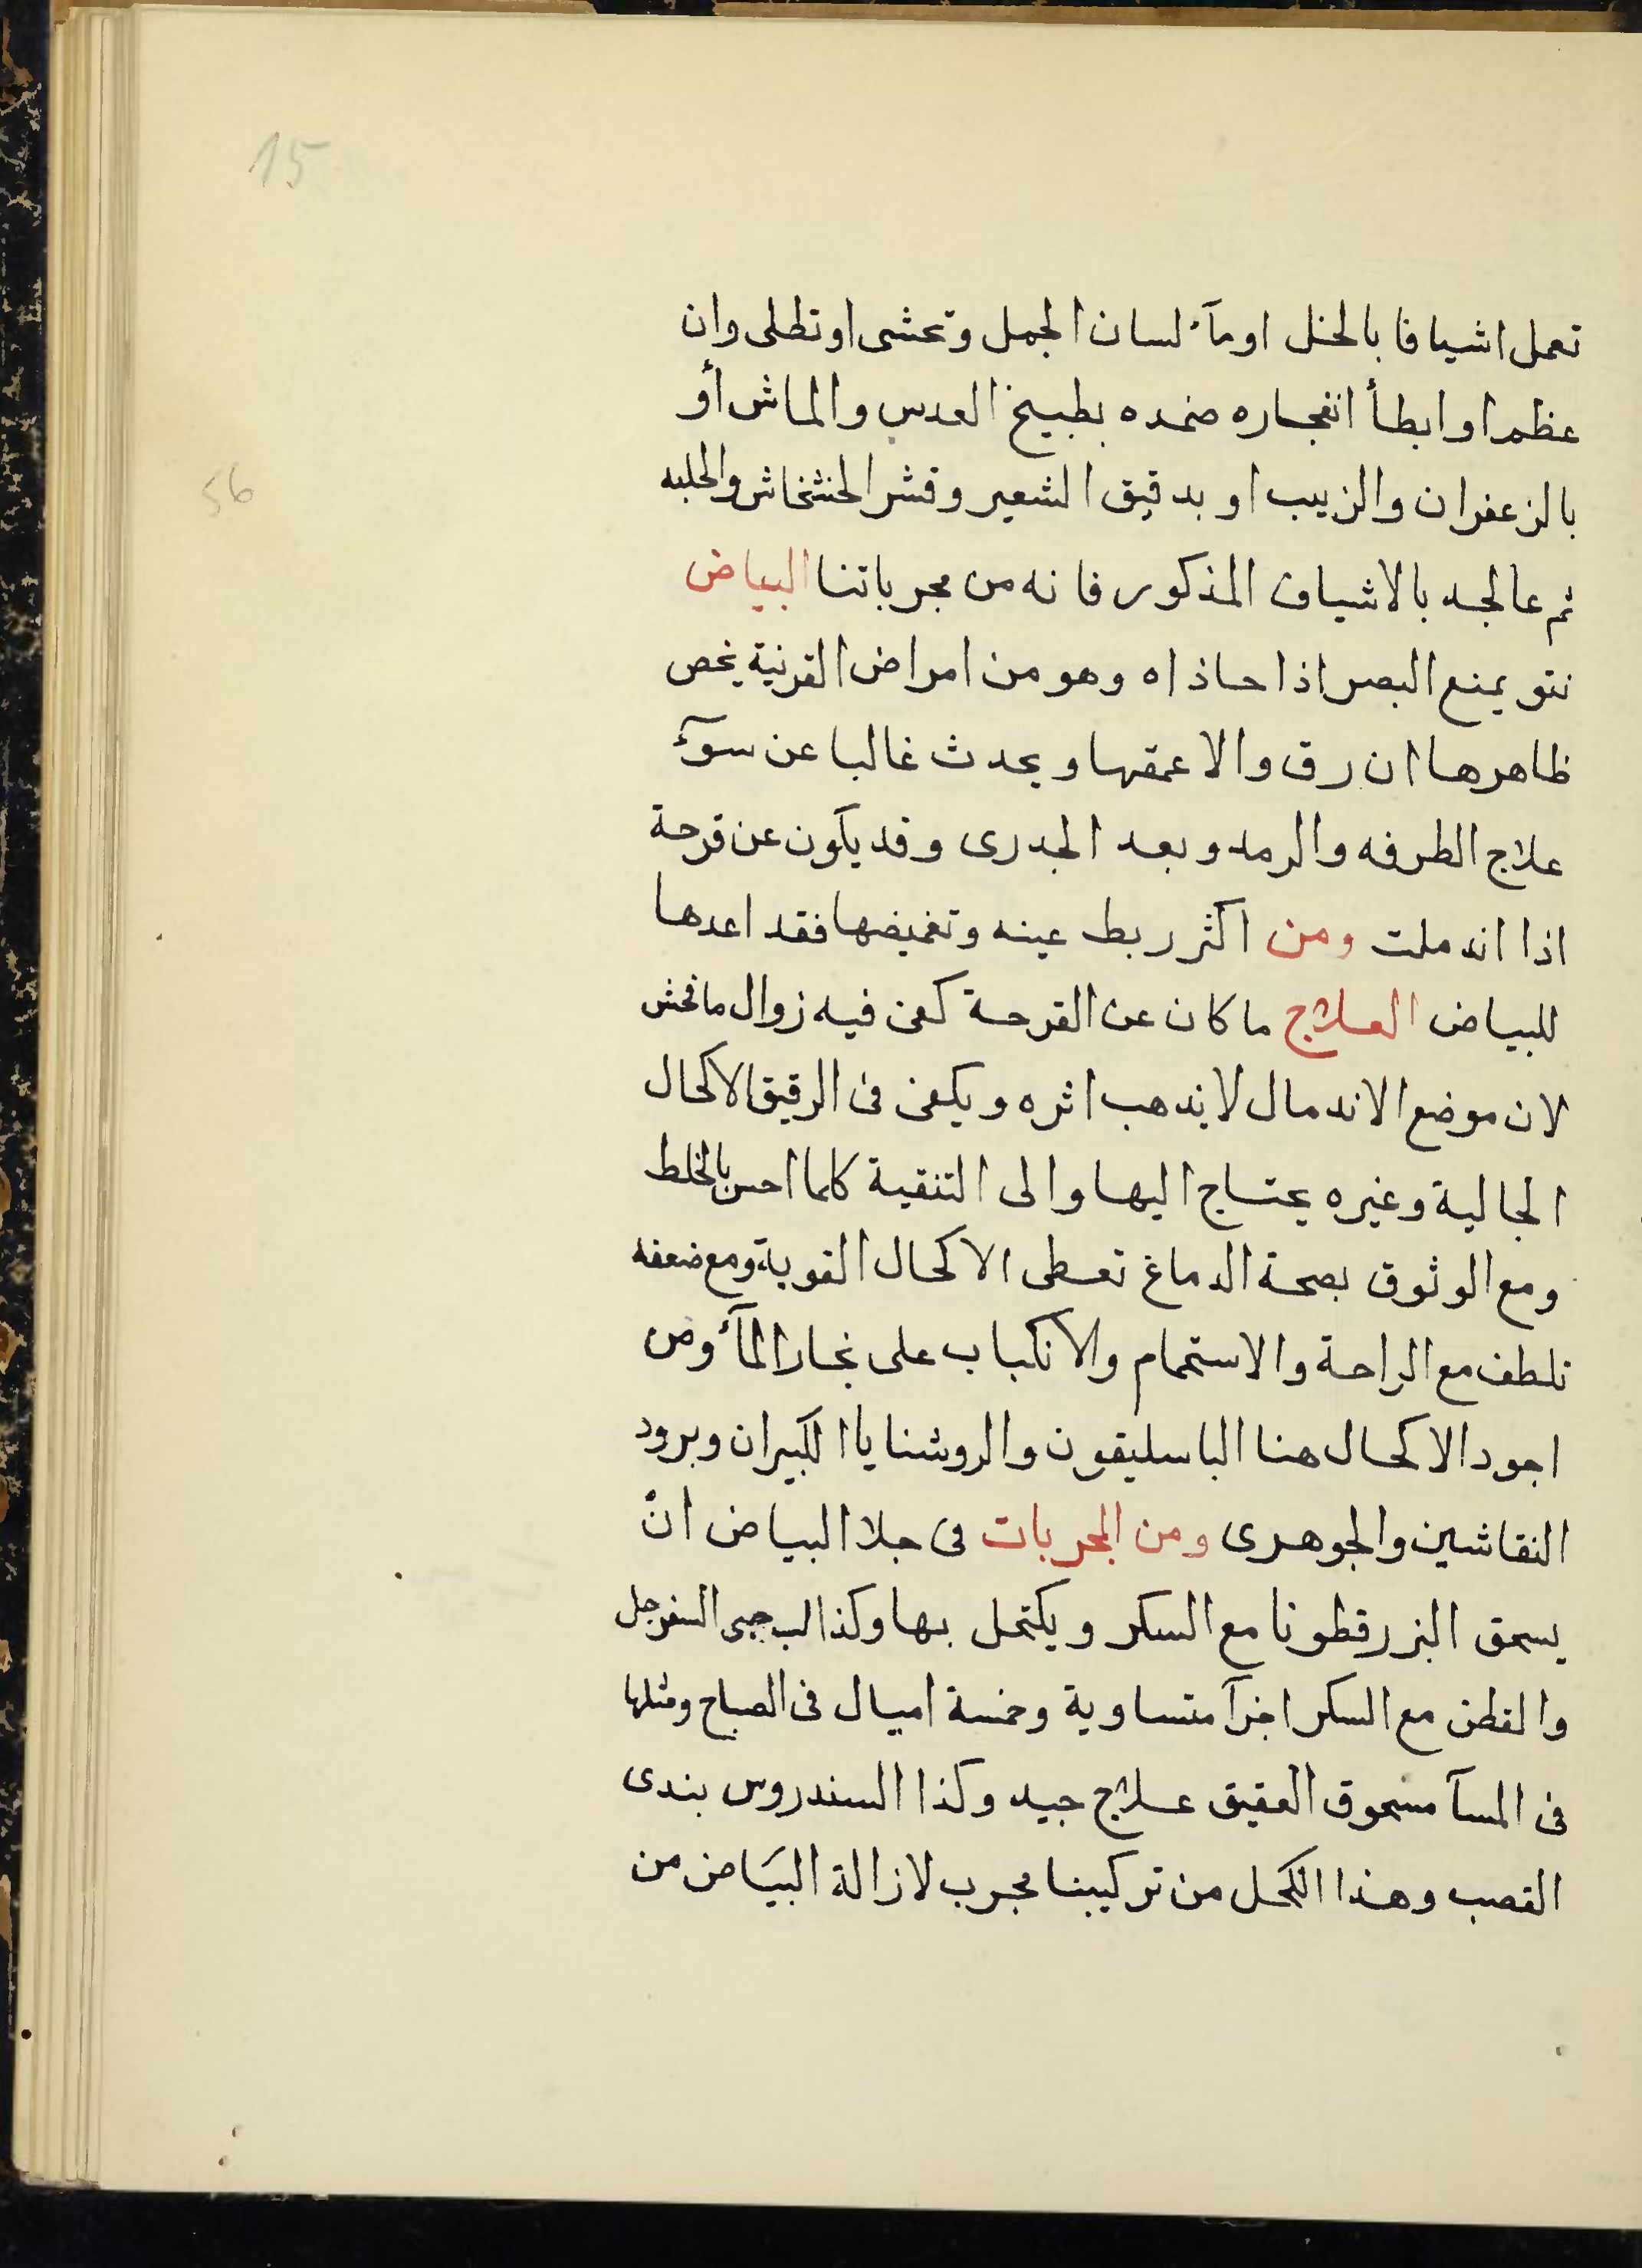 15
تعمل اشيافا بالخل او مآء لسان الجمل وتحشى او تطلى وان
عظم او ابطأ انفجاره ضمده بطبيخ العدس والماش أو
56
بالزعفران والزبيب او بدقيق الشعير وقشر الخشخاش والحلبه
ثم عالجه بالاشياف المذكور فانه من مجرباتنا البياض
نتو يمنع البصر اذا حاذاه وهو من امراض القرنية يخص
ظاهرها ان رق والا عمقها ويحدث غالبا عن سوٓء
علاج الطرفه والرمد وبعد الجدرى وقد يكون عن قرحة
اذا اندملت ومن اكثر ربط عينه وتغميضها فقد اعدها
للبياض العلاج ما كان عن القرحة كفى فيه زوال ما فحش
لان موضع الاندمال لا يذهب اثره ويكفى فى الرقيق الاكحال
الجالية وغيره يحتاج اليها والى التنقية كلما احس بالخلط
ومع الوثوق بصحة الدماغ تعطى الاكحال القوية ومع ضعفه
تلطف مع الراحة والاستحمام والانكباب على بخار المآء ومن
اجود الاكحال هنا الباسليقون والروشنايا الكبيران وبرود
النقاشين والجوهرى ومن المجربات فى جلا البياض انّ
يسحق البزرقطونا مع السكر ويكتحل بها وكذا لب حبى السفرجل
والقطن مع السكر اجزآ متساوية وخمسة اميال فى الصباح ومثلها
فى المسآ مسحوق العقيق علاج جيد وكذا السندروس بندى
القصب وهذا الكحل من تركيبنا مجرب لازالة البيَاض من